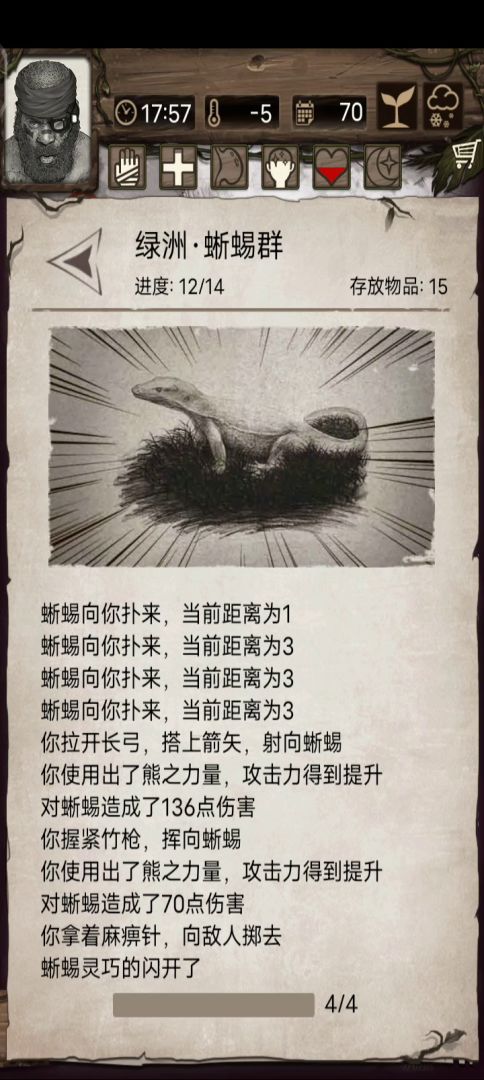 17:57
-5
70
绿洲·蜥蜴群
进度: 12/14
存放物品: 15
蜥蜴向你扑来，当前距离为1
蜥蜴向你扑来，当前距离为3
蜥蜴向你扑来，当前距离为3
蜥蜴向你扑来，当前距离为3
你拉开长弓，搭上箭矢，射向蜥蜴
你使用出了熊之力量，攻击力得到提升
对蜥蜴造成了136点伤害
你握紧竹枪，挥向蜥蜴
你使用出了熊之力量，攻击力得到提升
对蜥蜴造成了70点伤害
你拿着麻痹针，向敌人掷去
蜥蜴灵巧的闪开了
4/4